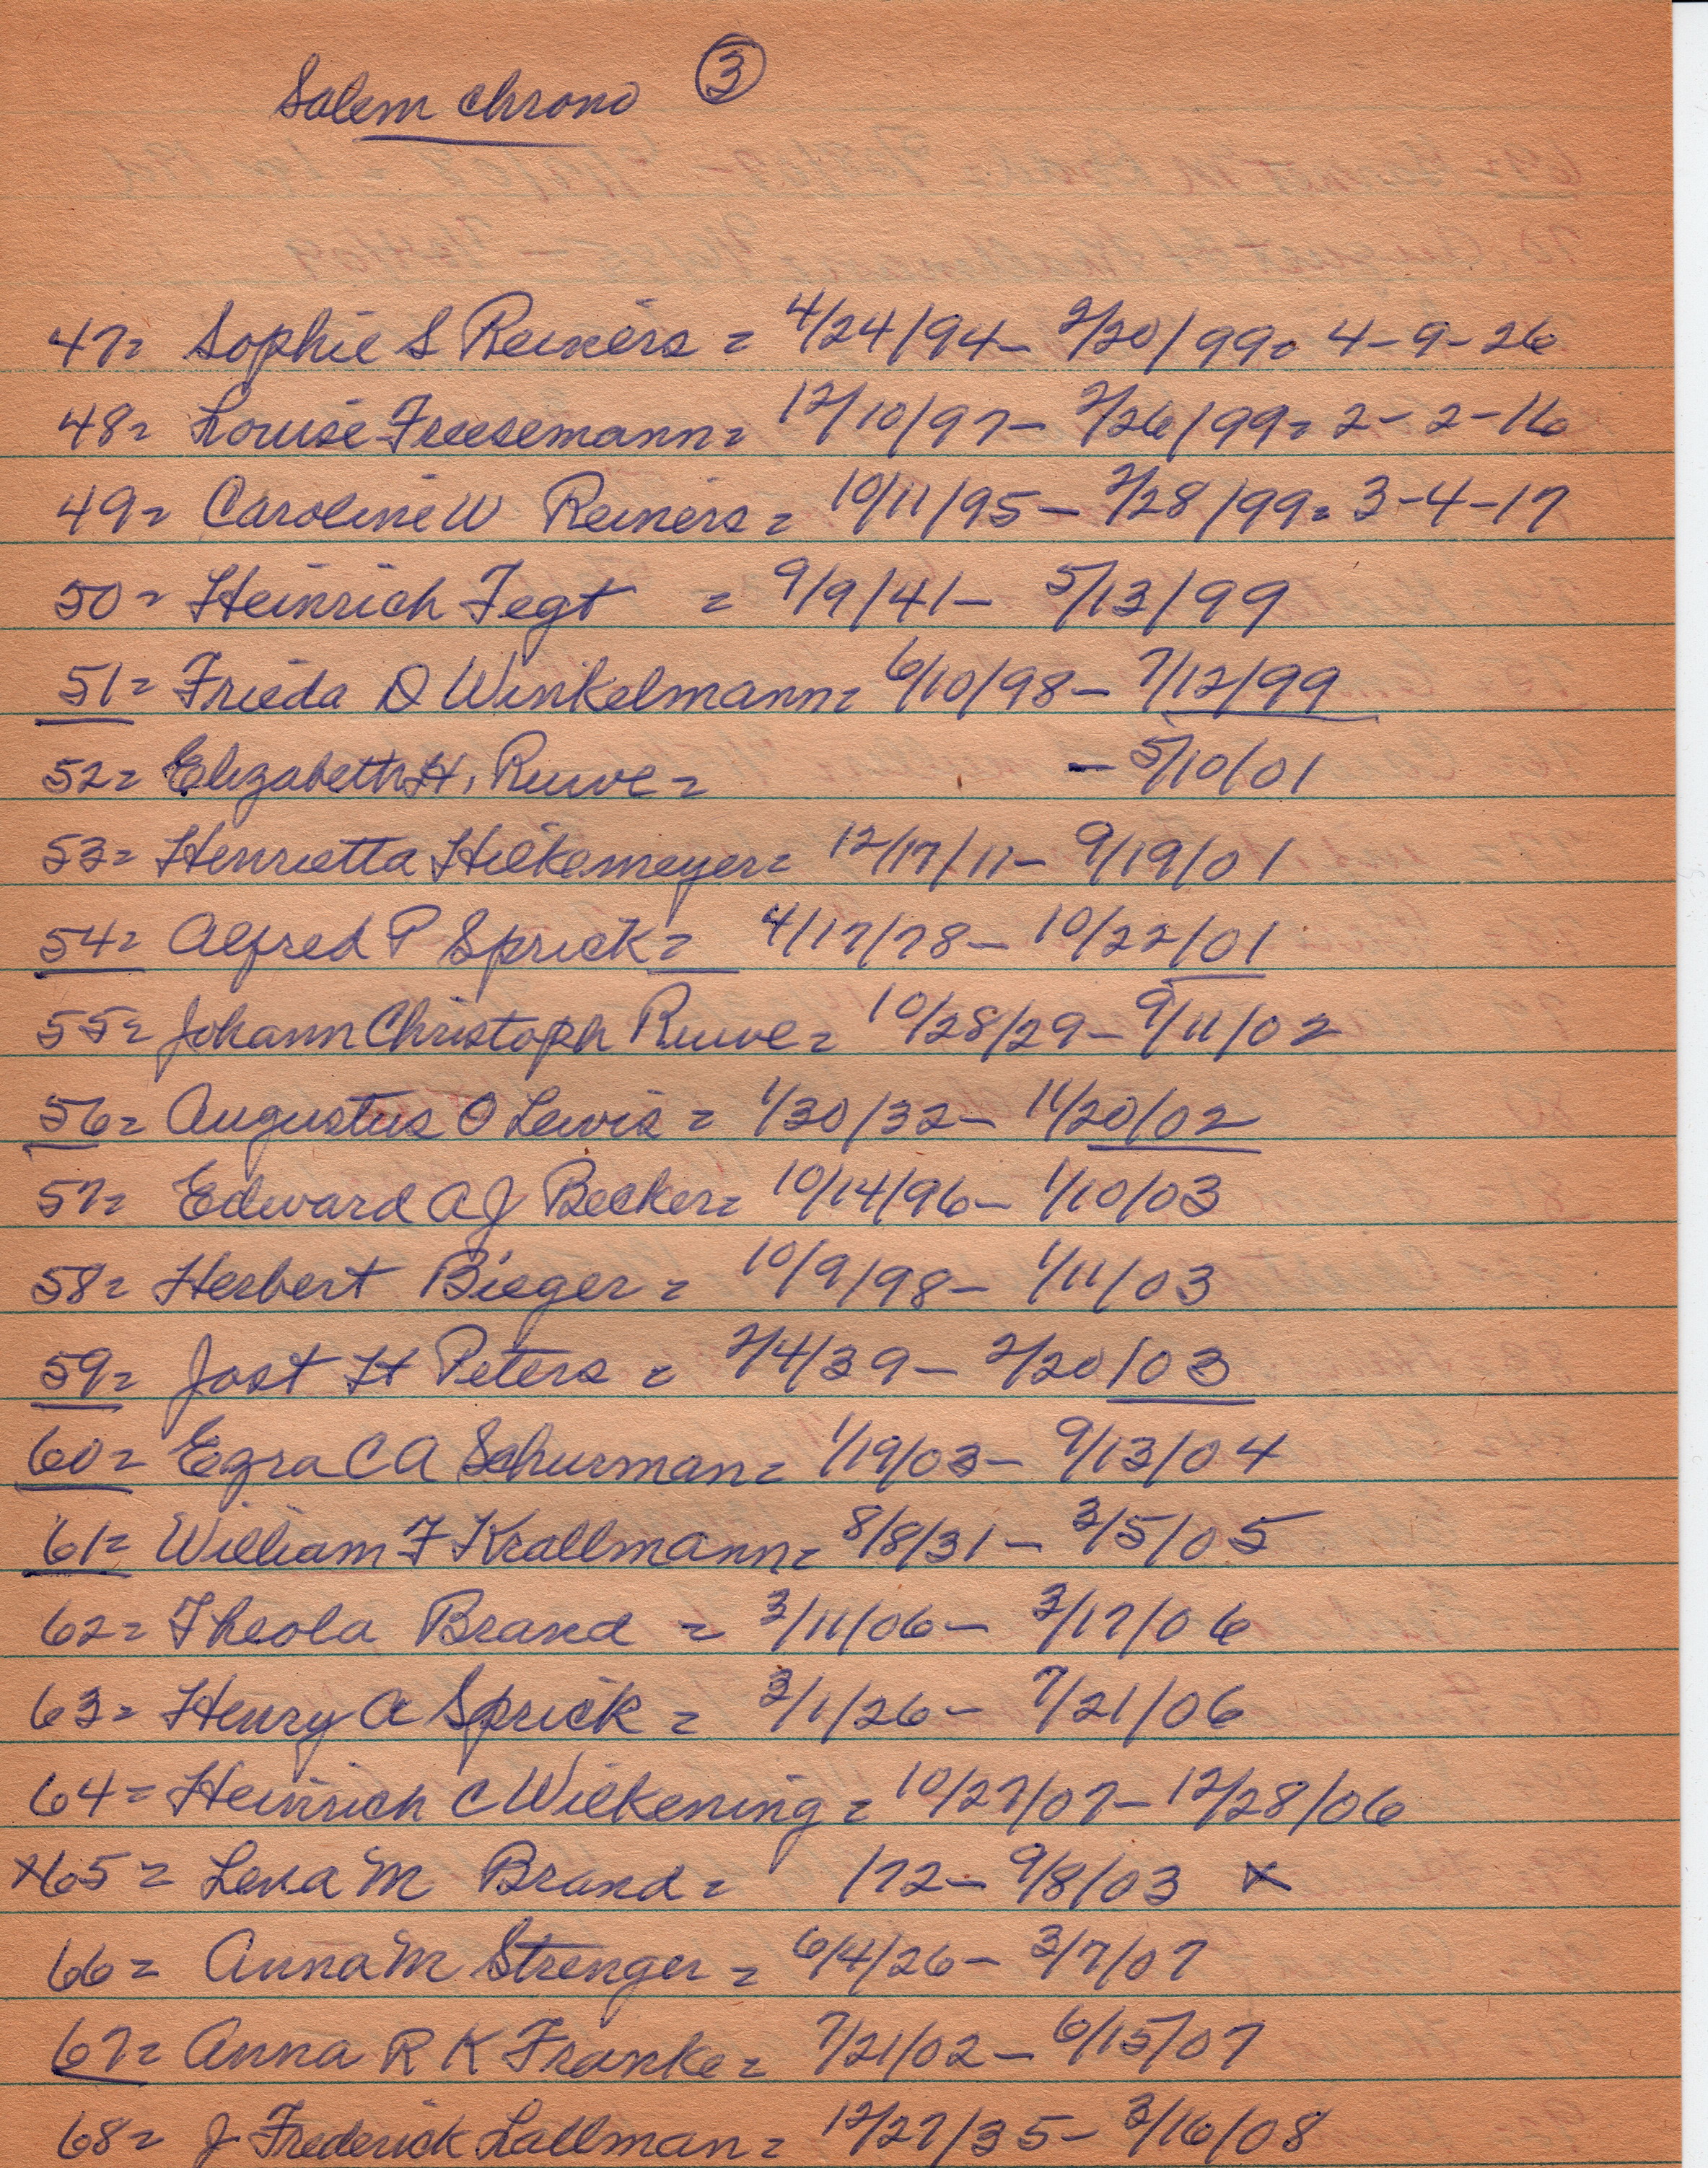 Salem chrono ③
47= Sophie S Reiners = 4/24/94 - 2/20/99= 4-9-26
48= Louise Freesemann= 12/10/97 - 2/26/99= 2-2-16
49= Caroline W Reiners= 10/11/95 - 2/28/99= 3-4-17
50= Heinrich Fegt = 9/9/41 - 5/13/99
51= Frieda D Winkelmann= 6/10/98 - 7/12/99
52= Elizabeth H. Ruwe= - 5/10/01
53= Henrietta Hilkemeyer= 12/17/11 - 9/19/01
54= Alfred P Sprick= 4/17/78 - 10/22/01
55= Johann Christoph Ruwe= 10/28/29 - 9/11/02
56= Augustus O Lewis = 1/30/32 - 11/20/02
57= Edward A J Becker= 10/14/96 - 1/10/03
58= Herbert Bieger = 10/9/98 - 1/11/03
59= Jost H Peters = 2/4/39 - 2/20/03
60= Ezra C A Schurman= 1/19/03 - 9/13/04
61= William F Krallmann= 8/8/31 - 3/5/05
62= Theola Brand = 3/11/06 - 3/17/06
63= Henry A Sprick = 3/1/26 - 7/21/06
64= Heinrich C Wilkening = 10/27/07 - 12/28/06
x65= Lena M Brand= /72 - 9/8/03 x
66= Anna M Strenger = 6/4/26 - 3/7/07
67= Anna R K Franke= 7/21/02 - 6/15/07
68= J Frederick Lallman= 12/27/35 - 3/16/08